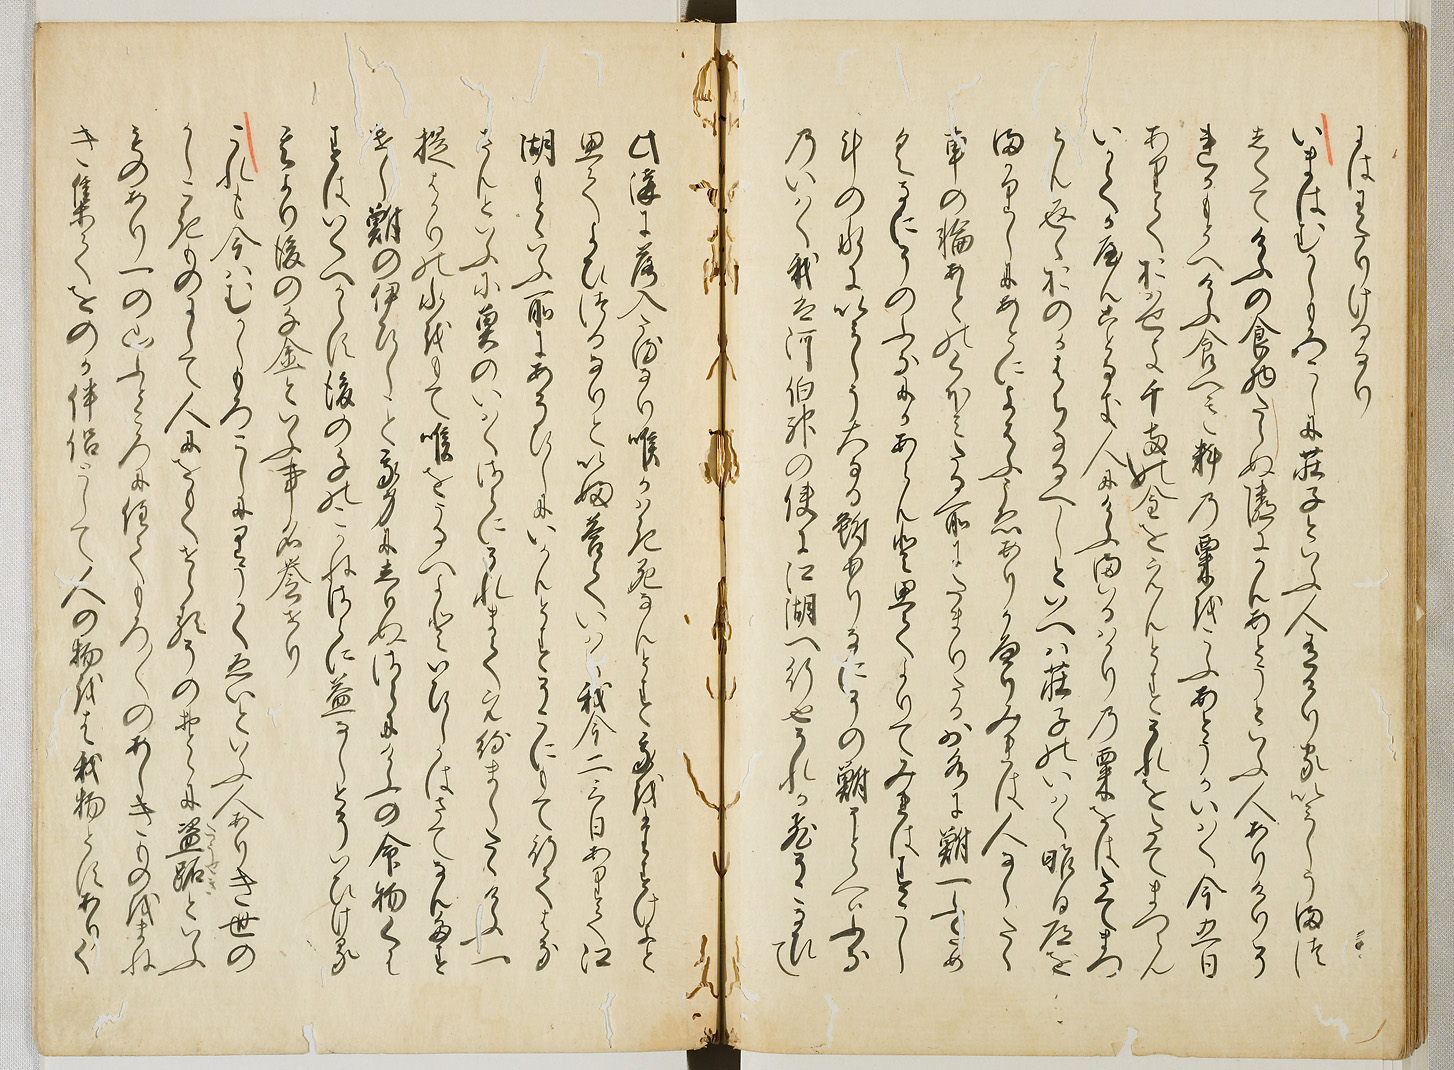 にはまさりけるなり
いまはむかしもろこしに荘子といふ人有けり家いみしうまつ
しくてけふの食物たえぬ隣にかんあとうといふ人ありけりそ
れかもとへけふ食へき料の粟をこふあとうかいはく今五日
ありておはせよ千両の金をえんとすそれをたてまつらん
いかてかやんことなき人にけふまいるはかりの粟をはたてまつ
らん返々おのかはちなるへしといへは荘子のいはく昨日道を
まかりしにあとによはふこゑありかへりみれは人なしたゝ
車の輪あとのくほみたる所にたまりたる少水に鮒一ふため
くなにそのふなにかあらんと思てよりてみれはすこし
斗の水にいみしう大なる鮒ありなにその鮒そととへはふな
のいはく我は河伯神の使に江湖へ行也それか飛そこなひて
此溝に落入たるなり喉かはき死なんとす我をたすけよと
思てよひつるなりといふ答ていはく我今二三日ありて江
湖もとといふ所にあそひしにいかんとすそこにもて行てはな
さんといふに魚のいはくさらにそれまてえ待ましたゝけふ一
提はかりの水をもて喉をうるへよといひしかはさてなんたす
けし鮒のいひしこと我身にしりぬさらにけふの命物くは
すはいくへからす後の千のこかねさらに益なしとそいひける
それより後の千金といふ事名誉せり
これも今はむかしもろこしにりうかくゑいといふ人ありき世の
かしこきものにして人にをもくせらるそのおとゝに盗跖といふ
ものあり一の山ふところに住てもろ〳〵のあしきものをまね
き集てをのか伴侶として人の物をは我物とすありく